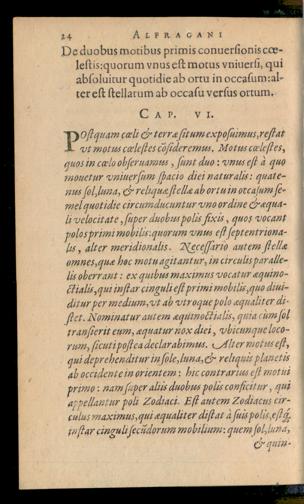 24 ALFRAGANI
De duobus motibus primis conuersionis cœ-
lestis: quorum vnus est motus vniuersi, qui
absoluitur quotidie ab ortu in occasum: al-
ter est stellarum ab occasu versus ortum.
CAP. VI.
POstquam cœli & terræ situm exposuimus, restat
vt motus cœlestes cōsideremus. Motus cœlestes,
quos in cœlo obseruamus, sunt duo: vnus est à quo
mouetur vniuersum spacio diei naturalis: quate-
nus sol, luna, & reliquæ stellæ ab ortu in occasum se-
mel quotidie circumducuntur vno ordine & æqua-
li velocitate, super duobus polis fixis, quos vocant
polos primi mobilis: quorum vnus est septentriona-
lis, alter meridionalis. Necessario autem stellæ
omnes, quæ hoc motu agitantur, in circulis paralle-
lis oberrant: ex quibus maximus vocatur æquino-
ctialis, qui instar cinguli est primi mobilis, quo diui-
ditur per medium, vt ab vtroque polo æqualiter di-
stet. Nominatur autem æquinoctialis, quia cùm sol
transierit eum, æquatur nox diei, vbicunque loco-
rum, sicuti postea declarabimus. Alter motus est,
qui deprehenditur in sole, luna, & reliquis planetis
ab occidente in orientem: hic contrarius est motui
primo: nam super aliis duobus polis conficitur, qui
appellantur poli Zodiaci. Est autem Zodiacus cir-
culus maximus, qui æqualiter distat à suis polis, estq́;
instar cinguli secūdorum mobilium: quem sol, luna,
& quin-